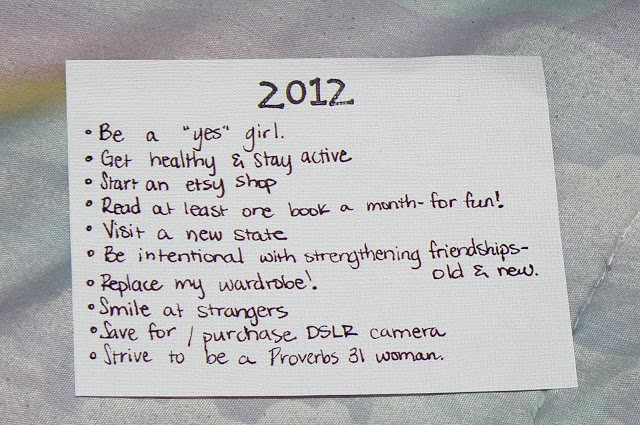 2012
• Be a "yes" girl.
• Get healthy & stay active
• Start an etsy shop
• Read at least one book a month- for fun!
• Visit a new state
• Be intentional with strengthening friendships-
old & new.
• Replace my wardrobe!
• Smile at strangers
• Save for / purchase DSLR camera
• Strive to be a Proverbs 31 woman.